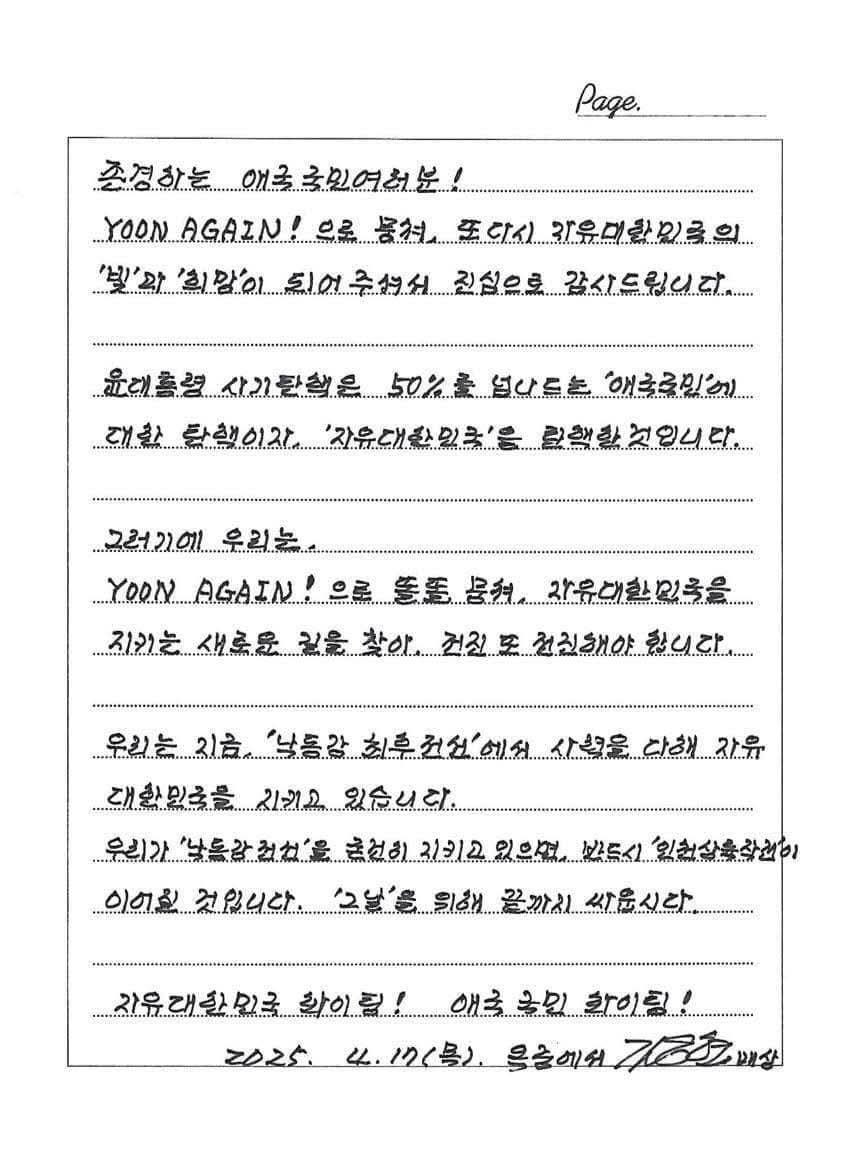 Page.
존경하는 애국국민여러분!
YOON AGAIN! 으로 뭉쳐, 또다시 자유대한민국의
'빛'과 '희망'이 되어주셔서 진심으로 감사드립니다.
윤대통령 사기탄핵은 50%를 넘나드는 '애국국민'에
대한 탄핵이자, '자유대한민국'을 탄핵한것입니다.
그러기에 우리는,
YOON AGAIN! 으로 똘똘 뭉쳐, 자유대한민국을
지키는 새로운 길을 찾아, 전진 또 전진해야 합니다.
우리는 지금, '낙동강 최후전선'에서 사력을 다해 자유
대한민국을 지키고 있습니다.
우리가 '낙동강전선'을 굳건히 지키고 있으면, 반드시 '인천상륙작전'이
이어질 것입니다. '그날'을 위해 끝까지 싸웁시다.
자유대한민국 화이팅! 애국국민 화이팅!
2025. 4. 17(목). 옥중에서 배상